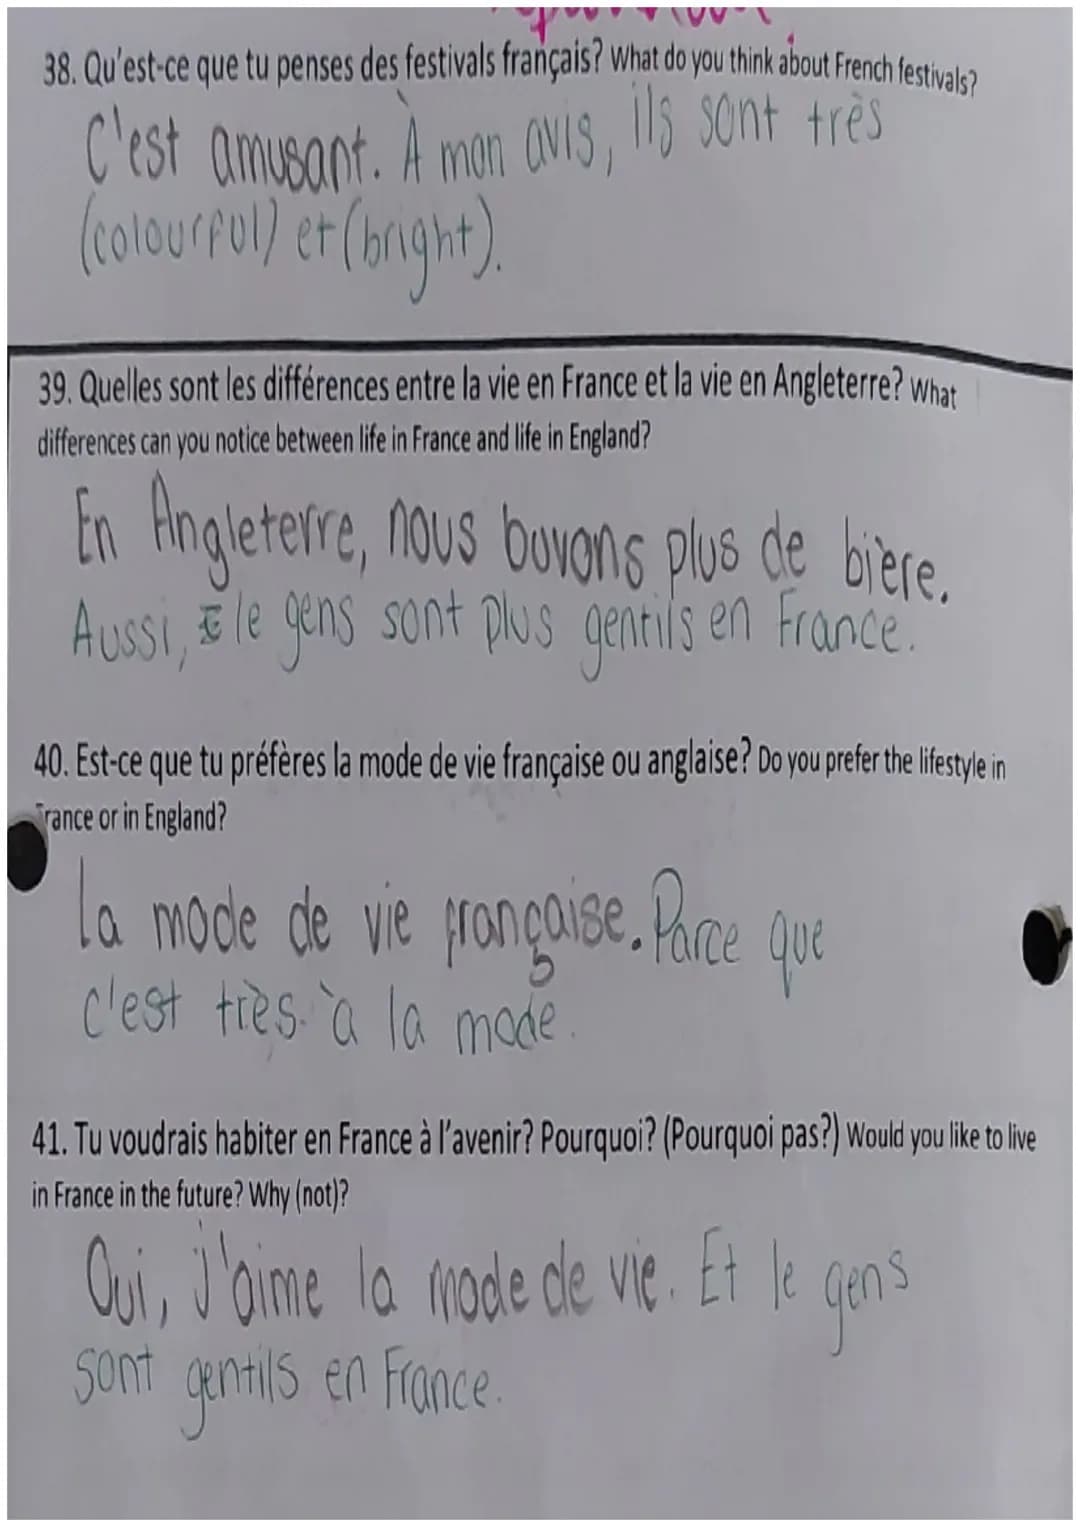 38. Qu'est-ce que tu penses des festivals français? What do you think about French festivals?
C'est amusant. À mon avis, ils sont très
(colourful) et (bright).
39. Quelles sont les différences entre la vie en France et la vie en Angleterre? What
differences can you notice between life in France and life in England?
En Angleterre, nous buvons plus de bière.
Aussi, le gens sont plus gentils en France.
40. Est-ce que tu préfères la mode de vie française ou anglaise? Do you prefer the lifestyle in
rance or in England?
La mode de vie française. Parce que
c'est très à la mode.
41. Tu voudrais habiter en France à l'avenir? Pourquoi? (Pourquoi pas?) Would you like to live
in France in the future? Why (not)?
Oui, J'aime la mode de vie. Et le gens
sont gentils en France.